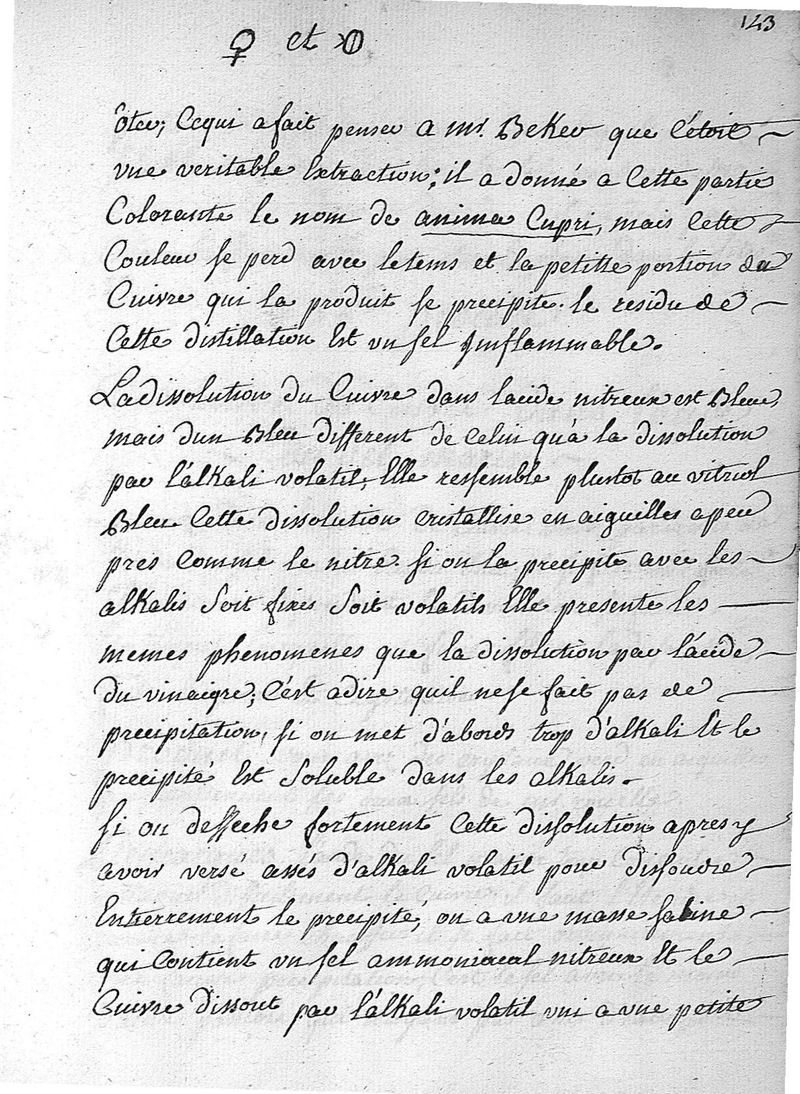 143
♀ et
ôter; Cequi a fait penser a mr. BeKer que c'étoit
une veritable Extraction; il a donné a Cette partie
Colorante le nom de anima Cupri, mais Cette
Couleur se perd avec letems et la petitte portion de
Cuivre qui la produit se precipite. le residu de
Cette distillation Est un sel Jnflammable.
La dissolution du Cuivre dans lacide nitreux est Bleue,
mais dun Bleu different de celui qu'a la dissolution
par l'álkali volatil, Elle ressemble plustot au vitriol
Bleu. Cette dissolution cristallise en aiguilles a peu
pres Comme le nitre. si on la precipite avec les
alkalis Soit fixes Soit volatils Elle presente les
memes phenomenes que la dissolution par lácide
du vinaigre; C'est adire quil ne se fait pas de
precipitation, si on met d'abord trop d'alkali Et le
precipité Est Soluble dans les alkalis.
si on desseche fortement Cette dissolution apres y
avoir versé assés d'alkali volatil pour dissoudre
Entierrement le precipité, on a une masse saline
qui Contient un sel ammoniacal nitreux Et le
Cuivre dissout par l'álkali volatil uni a une petite